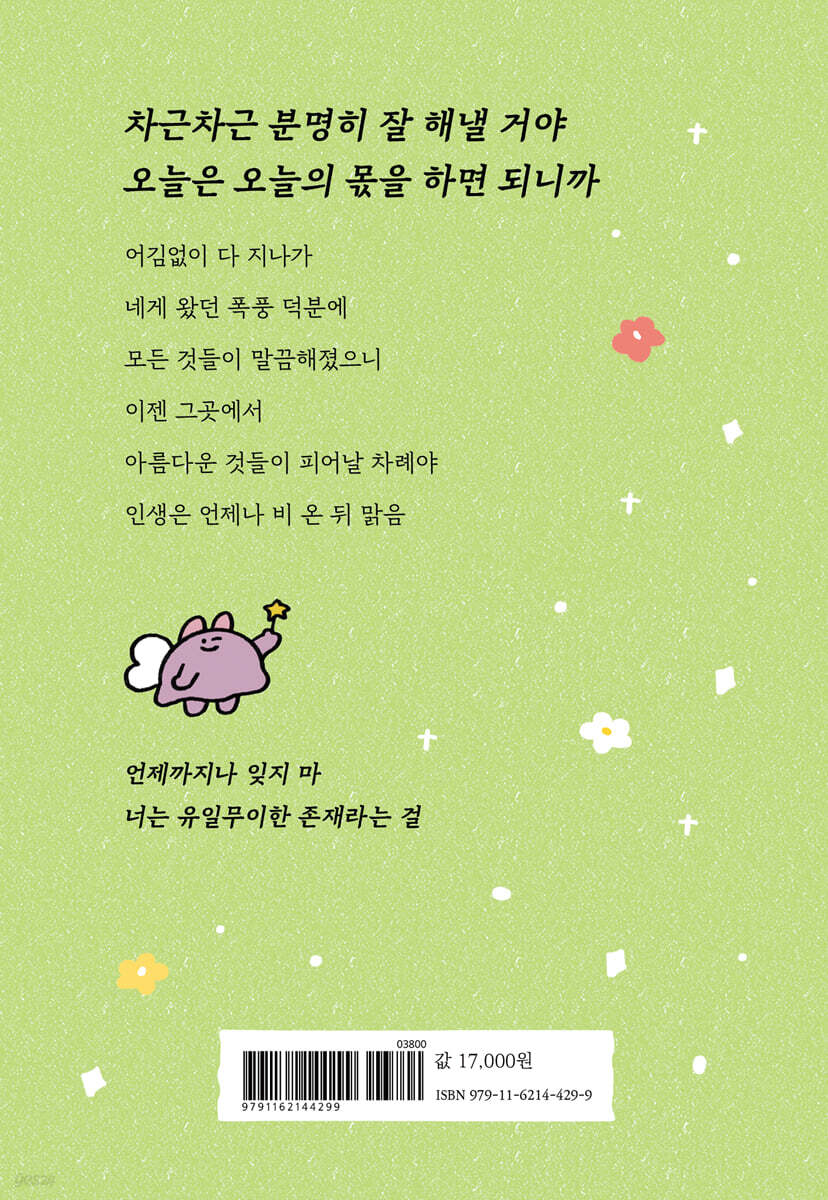 차근차근 분명히 잘 해낼 거야
오늘은 오늘의 몫을 하면 되니까
어김없이 다 지나가
네게 왔던 폭풍 덕분에
모든 것들이 말끔해졌으니
이젠 그곳에서
아름다운 것들이 피어날 차례야
인생은 언제나 비 온 뒤 맑음
언제까지나 잊지 마
너는 유일무이한 존재라는 걸
03800
값 17,000원
9791162144299
ISBN 979-11-6214-429-9
yes24